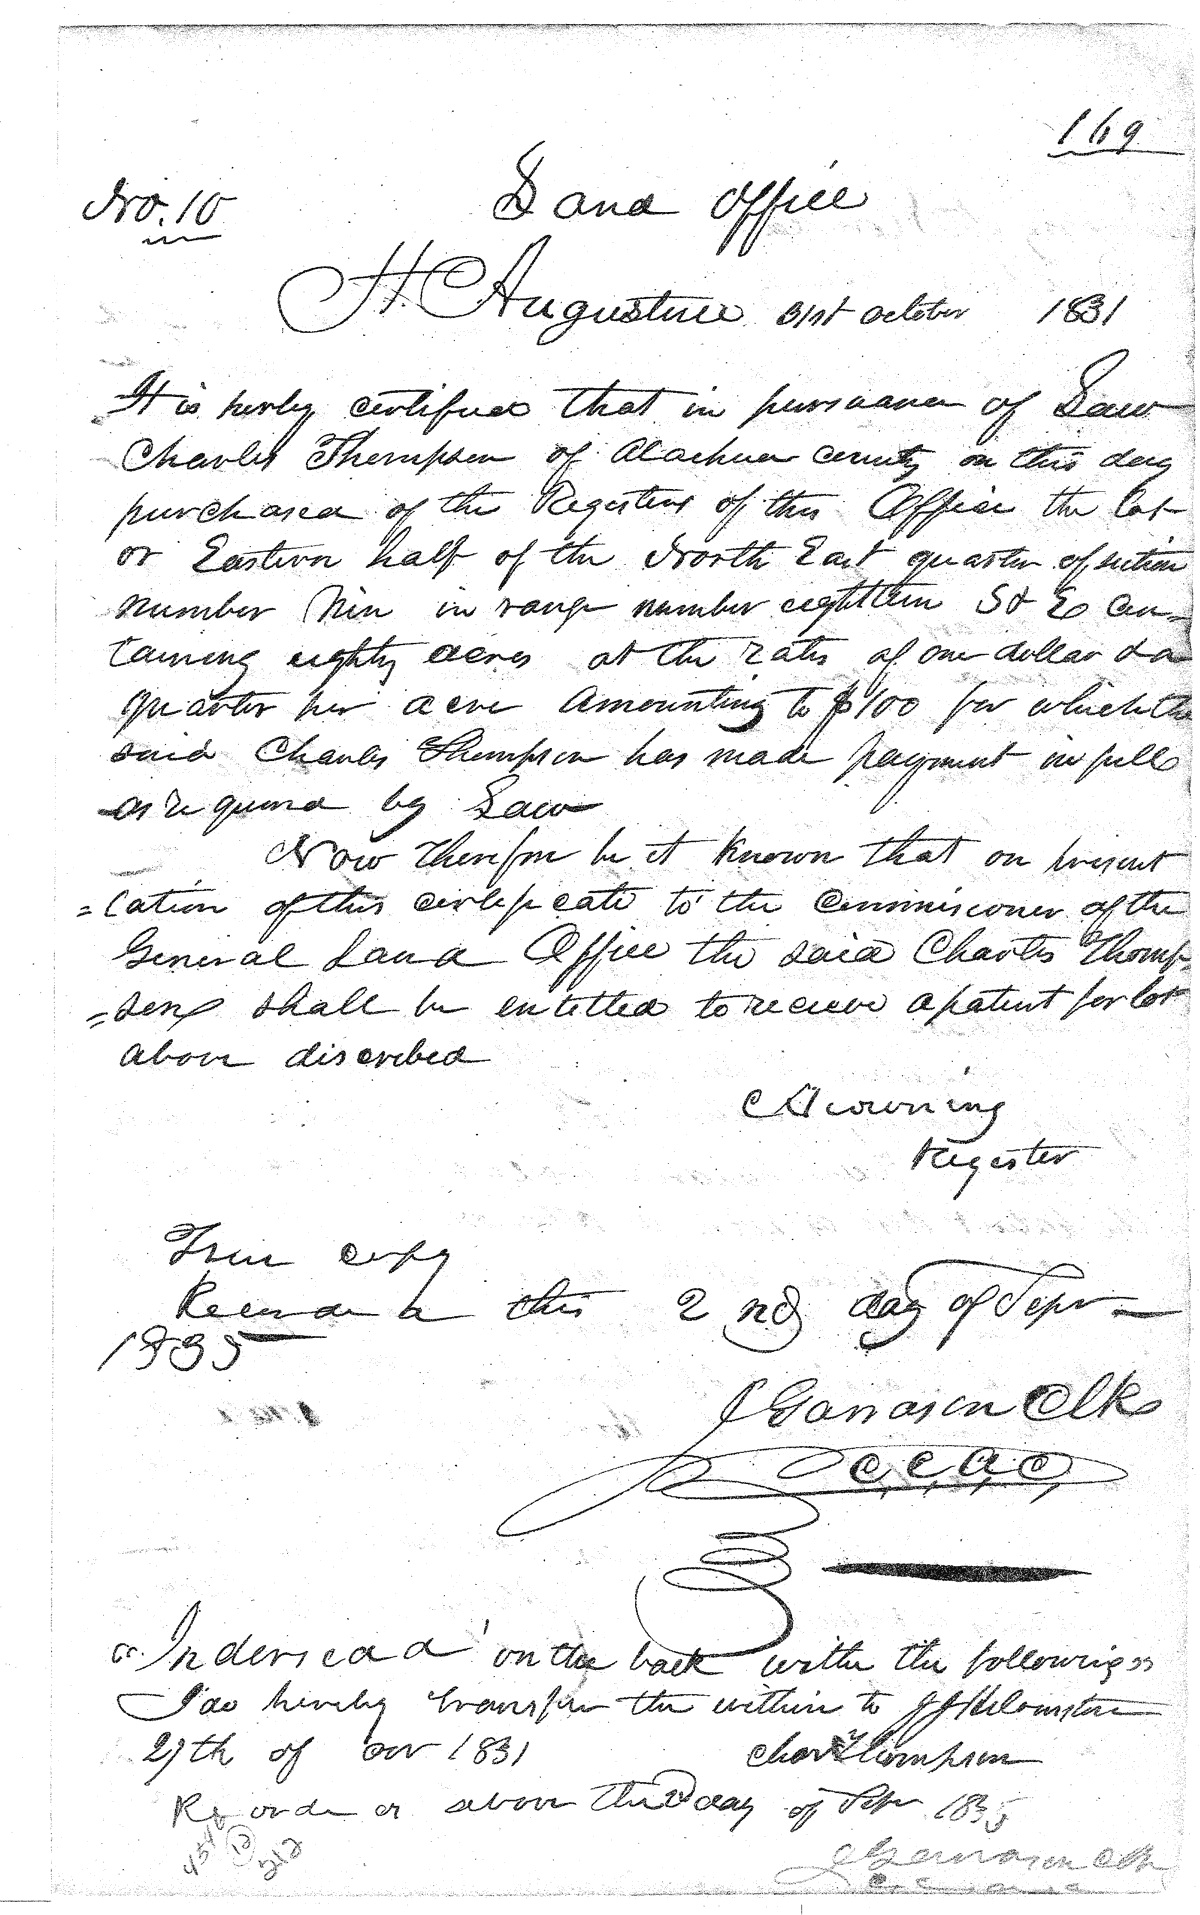 169
No. 10
Land Office
St Augustine 31st October 1831
It is herby certified that in pursuance of Law
Charles Thompson of Alachua county on this day
purchased of the Register of this Office the lot
or Eastern half of the North East quarter of section
number Nin in range number eighteen S & E Con-
taining eighty acres at the rate of one dollar & a
quarter per acre amounting to $100 for which the
said Charles Thompson has made payment in full
as required by Law
Now Therefore be it Known that on present
=tation of this certificate to the Commissioner of the
General Land Office the said Charles Thomp-
=son shall be entitled to recieve a patent for lot
above discribed
C Downing
Register
True copy
Recorded this 2nd day of Sept
1835
J Garrason Clk
C. C. A. C.
"Indorsed" on the back with the following"
I do hereby transfer the within to J J
29th of Oct 1831 Chas Thompson
Recorded above the 2d day of Sept 1835
J Garrason Clk